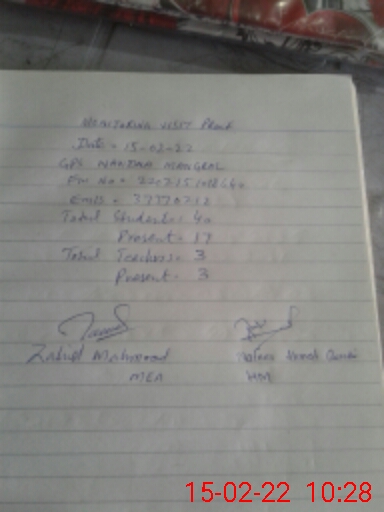 MONITORING VISIT PROOF
Date = 15-02-22
GPS NANDNA MANGRAL
EMIS = 37370212
Total Students = 40
Present = 17
Total Teachers = 3
Present = 3
Zahid Mahmood
MEA
15-02-22 10:28